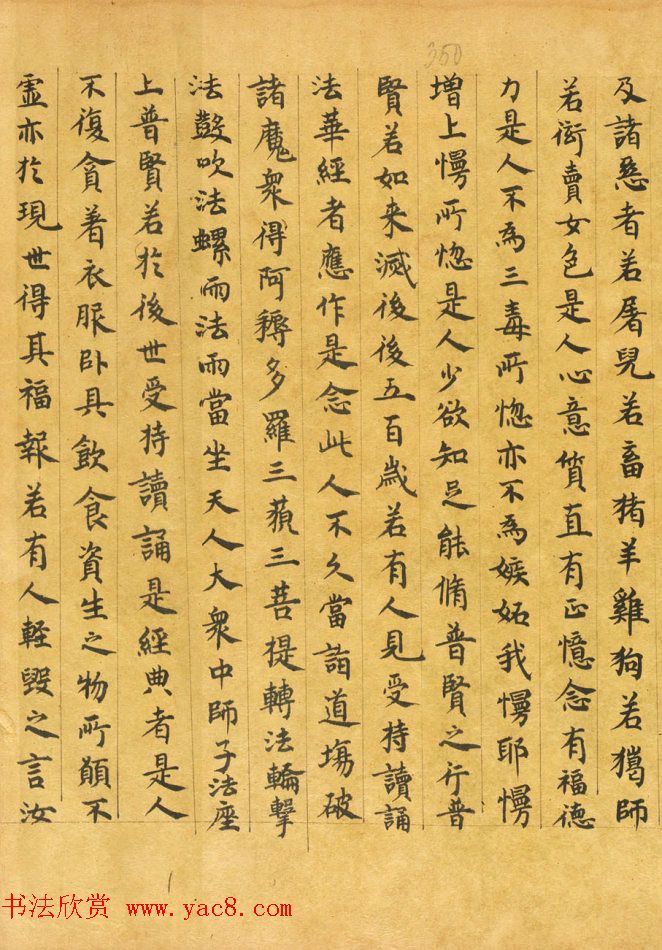 350
及諸惡者若屠兒若畜猪羊雞狗若獦師
若衒賣女色是人心意質直有正憶念有福德
力是人不為三毒所惱亦不為嫉妬我慢耶慢
増上慢所惱是人少欲知足能脩普賢之行普
賢若如来滅後後五百歲若有人見受持讀誦
法華經者應作是念此人不久當詣道塲破
諸魔衆得阿耨多羅三藐三菩提轉法輪擊
法鼓吹法螺雨法雨當坐天人大衆中師子法座
上普賢若於後世受持讀誦是經典者是人
不復貪著衣服卧具飲食資生之物所願不
虛亦於現世得其福報若有人輕毀之言汝
书法欣赏 www.yac8.com